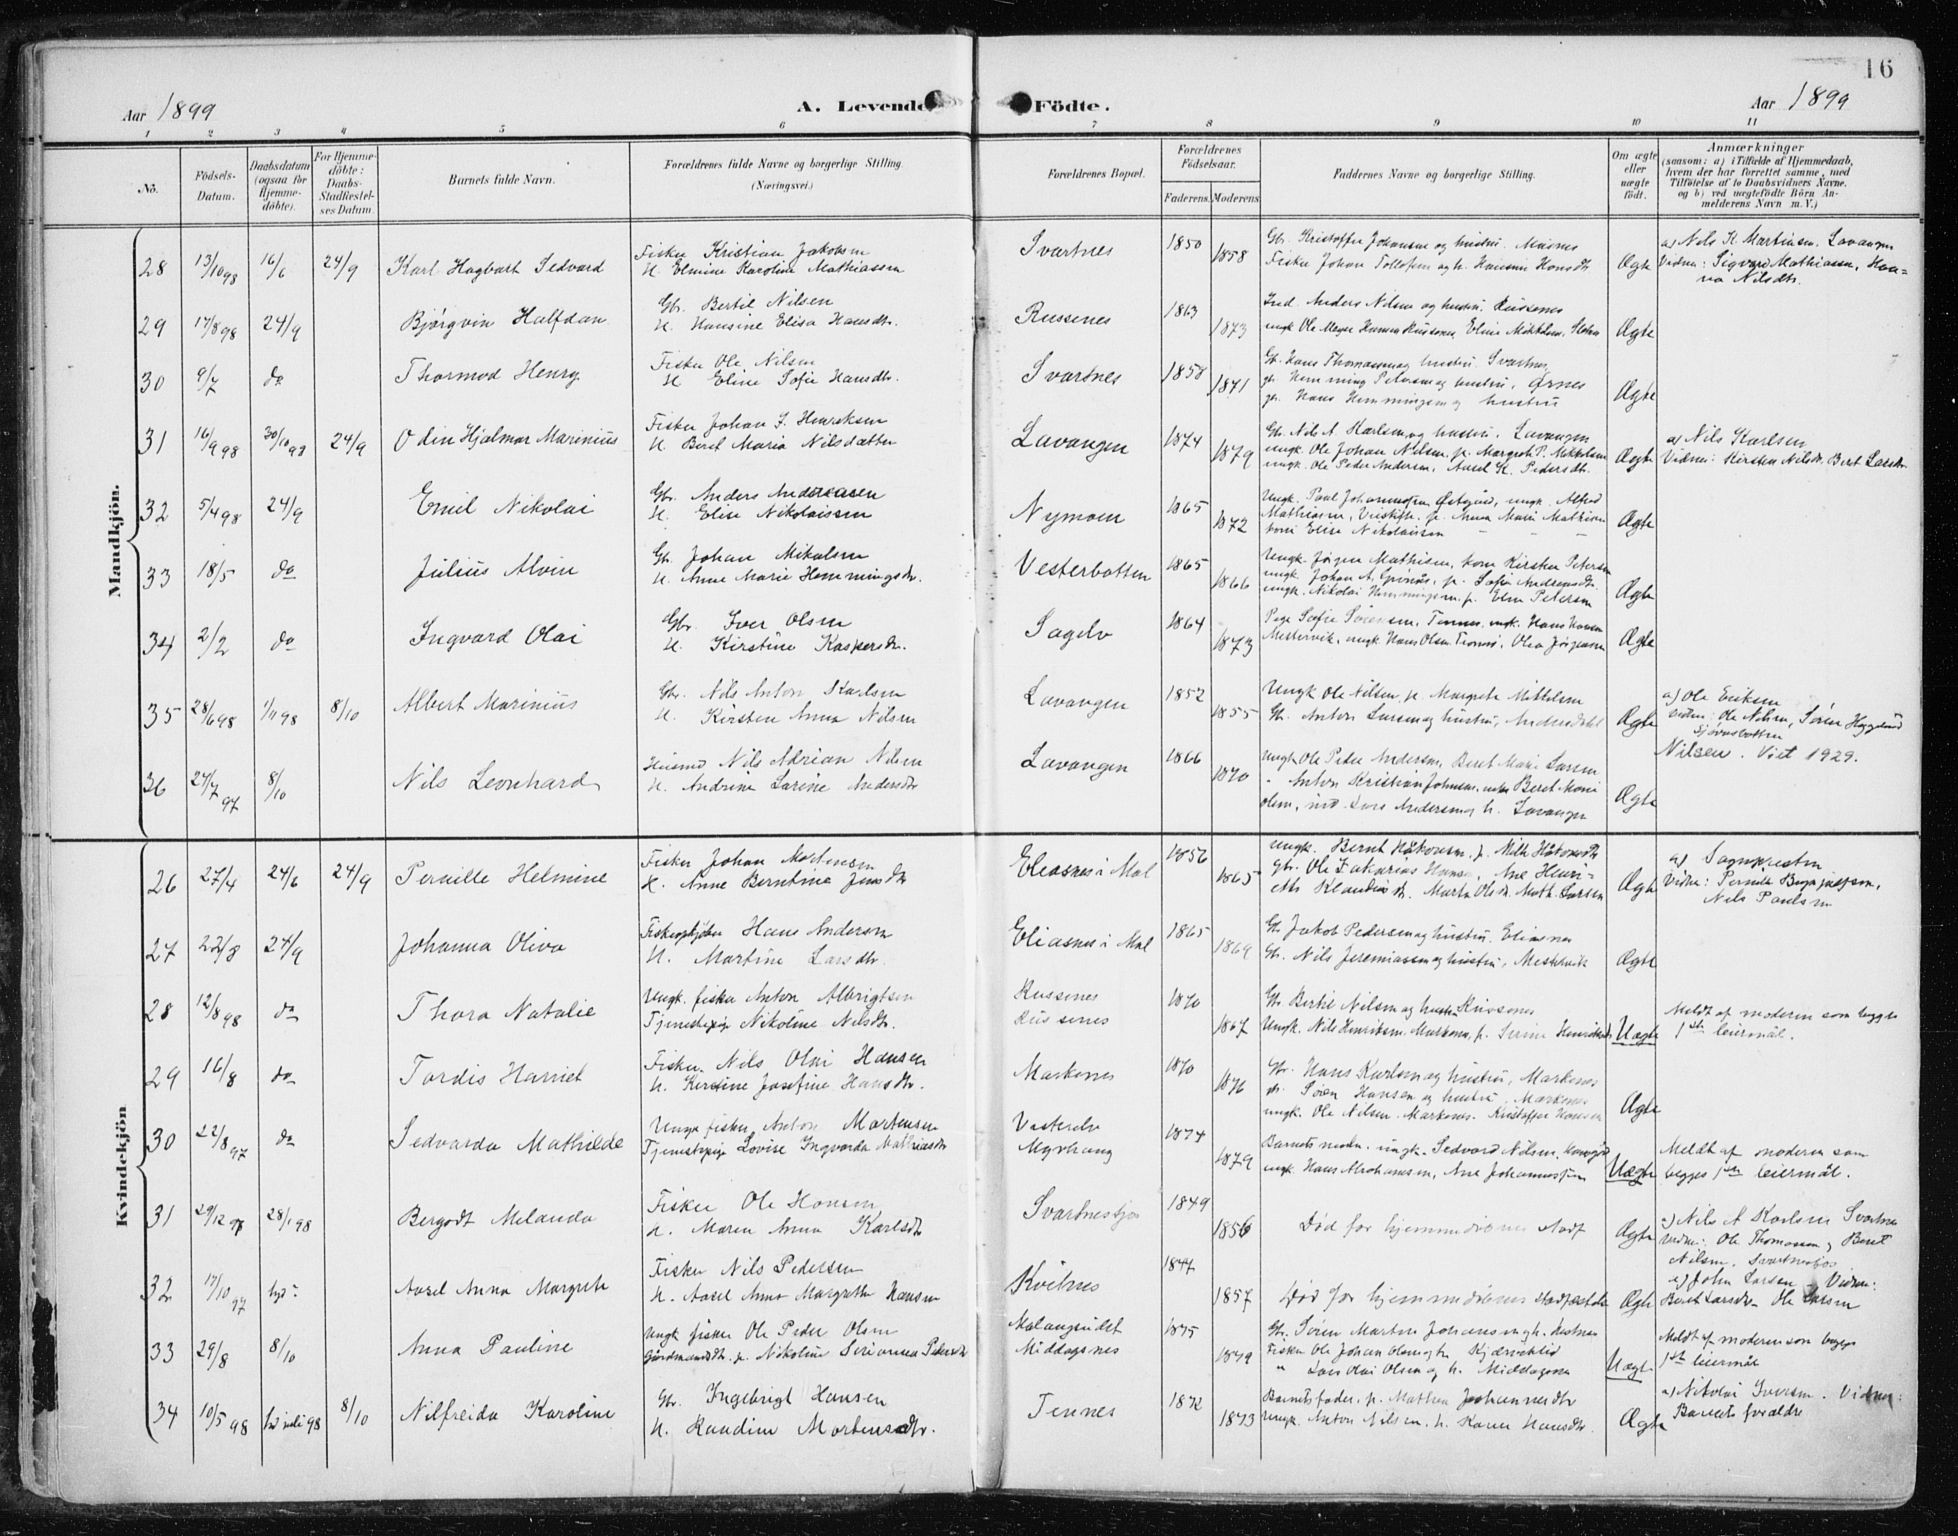 16
Aar 1899
A. Levende Födte.
Aar 1899
1 2 3 4 5 6 7 8 9 10 11
No.
Födsels-Datum.
Daabsdatum (ogsaa for Hjemme-döbte).
For Hjemme-döbte: Daabs-Stadfæstel-ses Datum
Barnets fulde Navn.
Forældrenes fulde Navne og borgerlige Stilling.
(Næringsvei.)
Forældrenes Bopæl.
Forældrenes Födselsaar.
Faderens. Moderens
Faddernes Navne og borgerlige Stilling.
Om ægte eller uægte födt.
Anmærkninger
(saasom: a) i Tilfælde af Hjemmedaab, hvem der har forrettet samme, med Tilföielse af to Daabsvidners Navne. og b) ved uægtefödte Börn An-melderens Navn m. V.)
Mandkjön.
28 13/10 98 16/6 24/9 Karl Hagbart Sedvard
Fisker Kristian Jakobsen
H. Elmine Karoline Mathiassen
Svartnes 1850 1858
Gb. Kristoffer Johansen og hustru
Fisker Johan Tollefsen og h.
Ægte
a) Nils K. Martinsen, Lavangen
Vidner: Sigvard Mathiassen,
Nilsdtr.
29 17/8 98 24/9 Bjørgvin Halfdan
Gb. Bertil Nilsen
H. Hansine Elisa Hansdtr.
Russenes 1863 1873
Ind. Anders Nilsen og hustru Russenes
Ægte
30 9/7 do Thormod Henry
Fisker Ole Nilsen
H. Eline Sofie Hansdtr.
Svartnes 1858 1871
Gb. Hans Thomassen og hustru Svartnes
gb. Hemming Petersen og hustru,
gb. Hans Hemmingsen og hustru
Ægte
31 16/9 98 30/10 98 24/9 Odin Hjalmar Marinius
Fisker Johan S. Henriksen
H. Beret Maria Nilsdatter
Lavangen 1874 1879
Gb. Nils A. Karlsen og hustru, Lavangen
ungk. Ole Johan Nilsen, p. Margrete P. Mikkelsen
ungk. Ole Peder Andersen, Aasel K. Pedersdtr.
Ægte
a) Nils Karlsen
Vidner: Kirsten Nilsdtr. Beret Larsdtr.
32 5/4 98 24/9 Emil Nikolai
Gb. Anders Andreasen
H. Elise Nikolaisen
Nymoen 1865 1872
Ungk. Paul Johannessen, ungk. Alfred
Mathiasen, p. Anna Marie Mathisen
kone Elise Nikolaisen
Ægte
33 18/5 do Julius Alvin
Gb. Johan Mikalsen
H. Anne Marie Hemmingsdtr.
Vesterbotten 1865 1866
Ungk. Jørgen Mathisen, kone Kirsten Petersen
ungk. Johan A. p. Sofie
ungk. Nikolai Hemmingsen, p. Petersen
Ægte
34 2/2 do Ingvard Olai
Gb. Iver Olsen
H. Kirstine Kaspersdtr.
Sagelv 1864 1873
Pige Sofie Sørensen, Tennes, ungk. Hans Hansen
Mestervik, ungk. Hans Olsen Tromsø, Olea Jørgensen
Ægte
35 28/6 98 1/11 98 8/10 Albert Marinius
Gb. Nils Anton Karlsen
H. Kirsten Anna Nilsen
Lavangen 1852 1855
Ungk Ole Nilsen, p. Margrete Mikkelsen
Gb. Anton Larsen og hustru,
Ægte
a) Ole Eriksen
Vidner: Ole Nilsen, Søren
36 27/7 97 8/10 Nils Leonhard
Husmd Nils Adrian Nilsen
H. Andrine Larine Andersdtr
Lavangen 1866 1870
Ungk Ole Peder Andersen, Beret Marie Larsen
" Anton Kristian Johnsen, Beret Marie
Olsen, ind. Lars Andersen og h. Lavangen
Ægte
Nilsen. Viet 1929.
Kvindekjön
26 27/4 24/6 24/9 Pernille Helmine
Fisker Johan Mortensen
H. Anne Berntine Jensdtr
Eliasnes i Mal 1856 1865
ungk. Bernt Håkonsen, p.
gb. Ole Zakarias Hansen, Ane Henri-
ette Klaudiusdtr. Martin Olsen, Math. Larsen
Ægte
a) Sognepresten
Vidner: Pernille
Nils Paulsen
27 22/8 24/9 Johanna Oliva
Hans Andersen
H. Martine Larsdtr.
Eliasnes i Mal 1865 1869
Gb. Jakob Pedersen og hustru. Eliasnes
Gb. Nils Jeremiassen og hustru, Mestervik
Ægte
28 12/8 98 do Thora Natalie
Ungk. fisker Anton Albrigtsen
Tjenestepige Nikoline Nilsdtr.
Russenes
Russenes 1870 1867
Gb. Bertil Nilsen og hustru Russenes
Ungk. Nils Henriksen Markenes, p.
Uægte
Meldt af moderen som begges
1ste leiermål.
29 16/8 do Tordis Harriet
Fisker Nils Olai Hansen
H. Kirstine Josefine Hansdtr.
Markenes 1870 1876
Gb. Hans Karlsen og hustru, Markenes
do. Søren Hansen og hustru, Markenes
ungk. Ole Nilsen, Markenes. Kristoffer Hansen
Ægte
30 22/8 97 do Sedvarda Mathilde
Ungk fisker Anton Mortensen
Tjenestepige Lovise Ingvarda Mathiasdtr
Vesterelv
Myrhaug 1874 1879
Barnets moder. ungk. Sedvard Nilsen,
ungk. Hans Abrahamsen, Ane Johannessen
Uægte
Meldt af moderen som
begges 1ste leiermål.
31 29/12 98 28/1 98 Bergodt Melanda
Fisker Ole Hansen
H. Maren Anna Karlsdtr
Svartnes 1849 1856
Død før hjemmedåbens stadf
Ægte
a) Nils A Karlsen Svartnes
Vidner: Ole Thomassen, Beret
Nilsen,
32 17/10 97 Aasel Anna Margrete
Fisker Nils Pedersen
H. Aasel Anna Margrethe Hansen
Kvitnes 1847 1857
Død før hjemmedåbens stadfæstelse
Ægte
a) John Larsen Vidner:
Beret Larsdtr. Ole Larsen
33 29/8 8/10 Anna Pauline
Ungk fisker Ole Peder Olsen
Gårdmandsdtr. p. Nikoline
Malangseidet
Middagsnes 1875 1879
Gb. Søren Martin Johansen og h.
Fisker Ole Johan Olsen og h.
" Lars Olai Olsen og h. Middagsnes
Uægte
Meldt af moderen som begges
1ste leiermål
34 10/5 98 98 8/10 Nilfreida Karoline
Gb. Ingebrigt Hansen
H. Randine Mortensdtr.
Tennes 1872 1873
Barnets fader, p. Mathea Johannesdtr
Ungk. Anton Nilsen, p. Karen Hansdtr.
Ægte
a) Nikolai Iversen. Vidner:
Barnets forældre